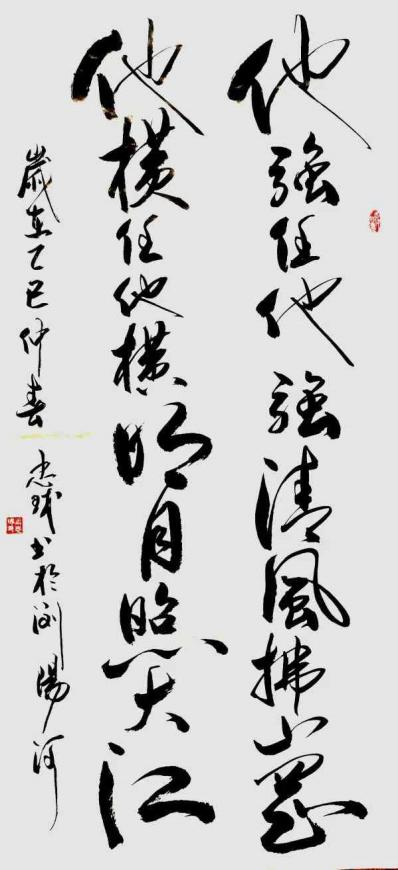 他強任他強清風拂山崗
他橫任他橫明月照大江
歲在乙巳仲春
忠球書於瀏陽河